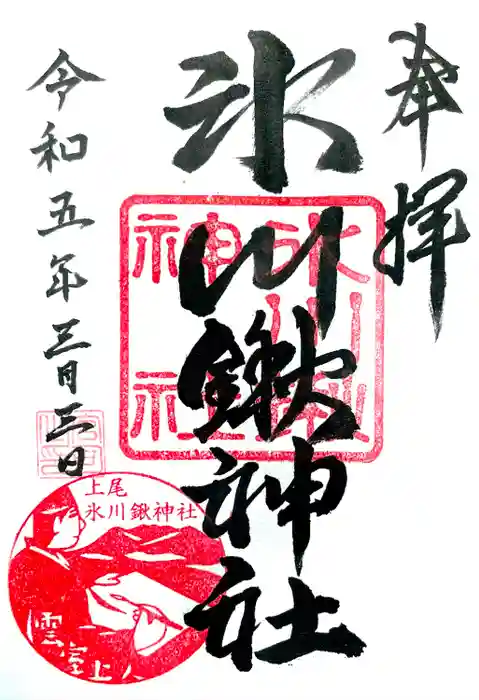 奉拝
氷川鍬神社
令和五年三月三日
上尾
氷川鍬神社
雲室上人